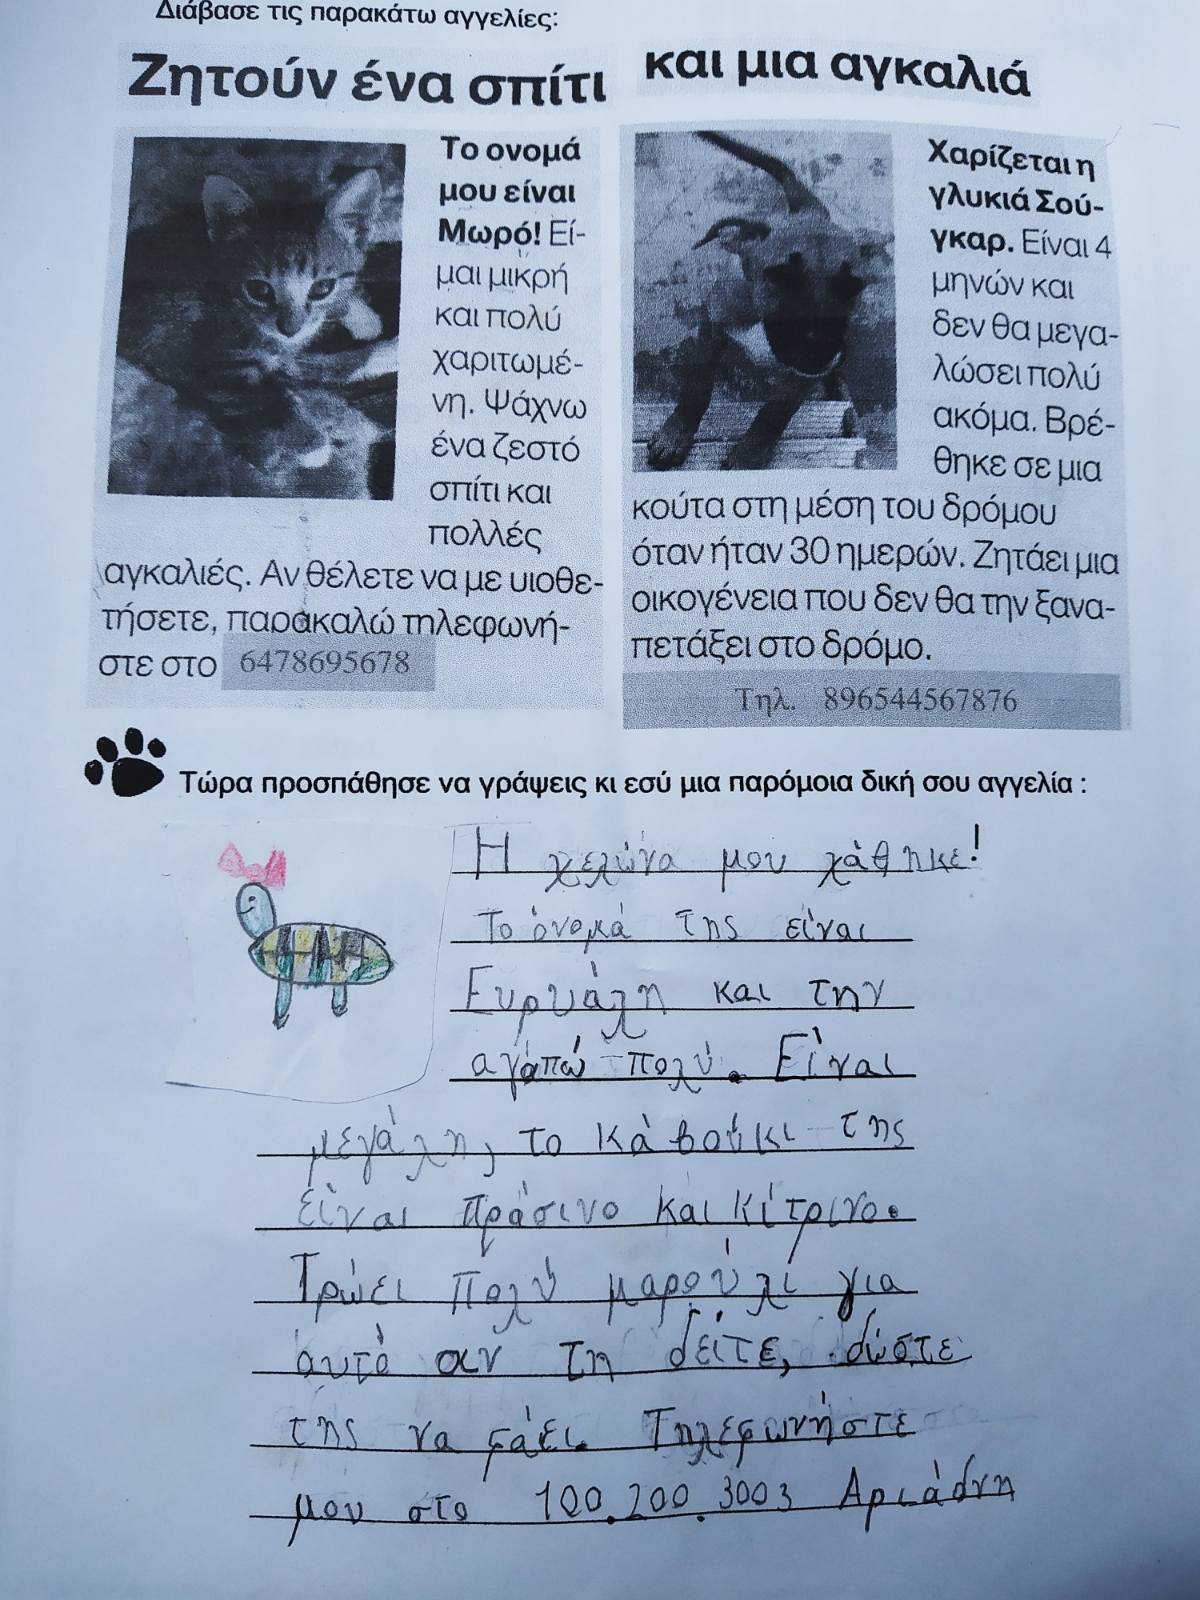 Διάβασε τις παρακάτω αγγελίες:
Ζητούν ένα σπίτι και μια αγκαλιά
Το ονομά
μου είναι
Μωρό! Εί-
μαι μικρή
και πολύ
χαριτωμέ-
νη. Ψάχνω
ένα ζεστό
σπίτι και
πολλές
αγκαλιές. Αν θέλετε να με υιοθε-
τήσετε, παρακαλώ τηλεφωνή-
στε στο 6478695678
Χαρίζεται η
γλυκιά Σού-
γκαρ. Είναι 4
μηνών και
δεν θα μεγα-
λώσει πολύ
ακόμα. Βρέ-
θηκε σε μια
κούτα στη μέση του δρόμου
όταν ήταν 30 ημερών. Ζητάει μια
οικογένεια που δεν θα την ξανα-
πετάξει στο δρόμο.
Τηλ. 896544567876
Τώρα προσπάθησε να γράψεις κι εσύ μια παρόμοια δική σου αγγελία :
Η χελώνα μου χάθηκε!
Το όνομά της είναι
Ευρυάλη και την
αγαπώ πολύ. Είναι
μεγάλη, το καβούκι της
είναι πράσινο και κίτρινο.
Τρώει πολύ μαρούλι για
αυτό αν τη δείτε, δώστε
της να φάει. Τηλεφωνήστε
μου στο 100.200.3003 Αριάδνη